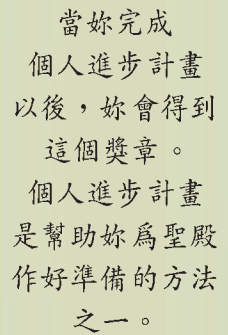 當妳完成
個人進步計畫
以後，妳會得到
這個獎章。
個人進步計畫
是幫助妳爲聖殿
作好準備的方法
之一。